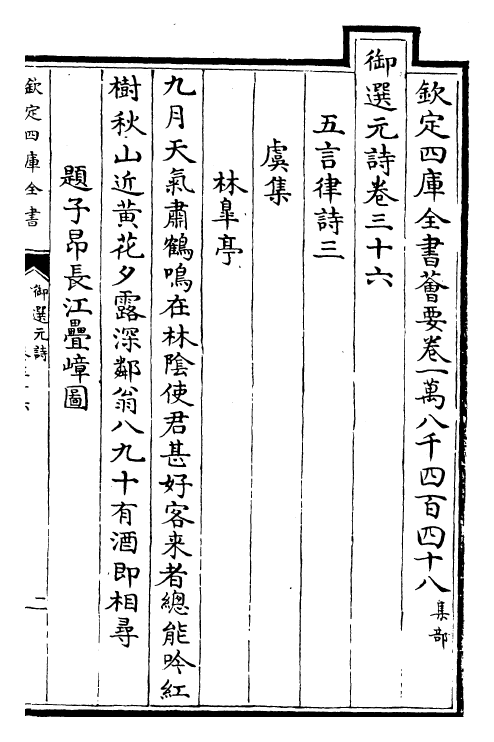 欽定四庫全書薈要卷一萬八千四百四十八 集部
御選元詩卷三十六
五言律詩三
虞集
林臯亭
九月天氣肅鶴鳴在林陰使君甚好客来者總能吟紅
樹秋山近黄花夕露深鄰翁八九十有酒即相尋
題子昂長江疊嶂圖
欽定四庫全書
御選元詩